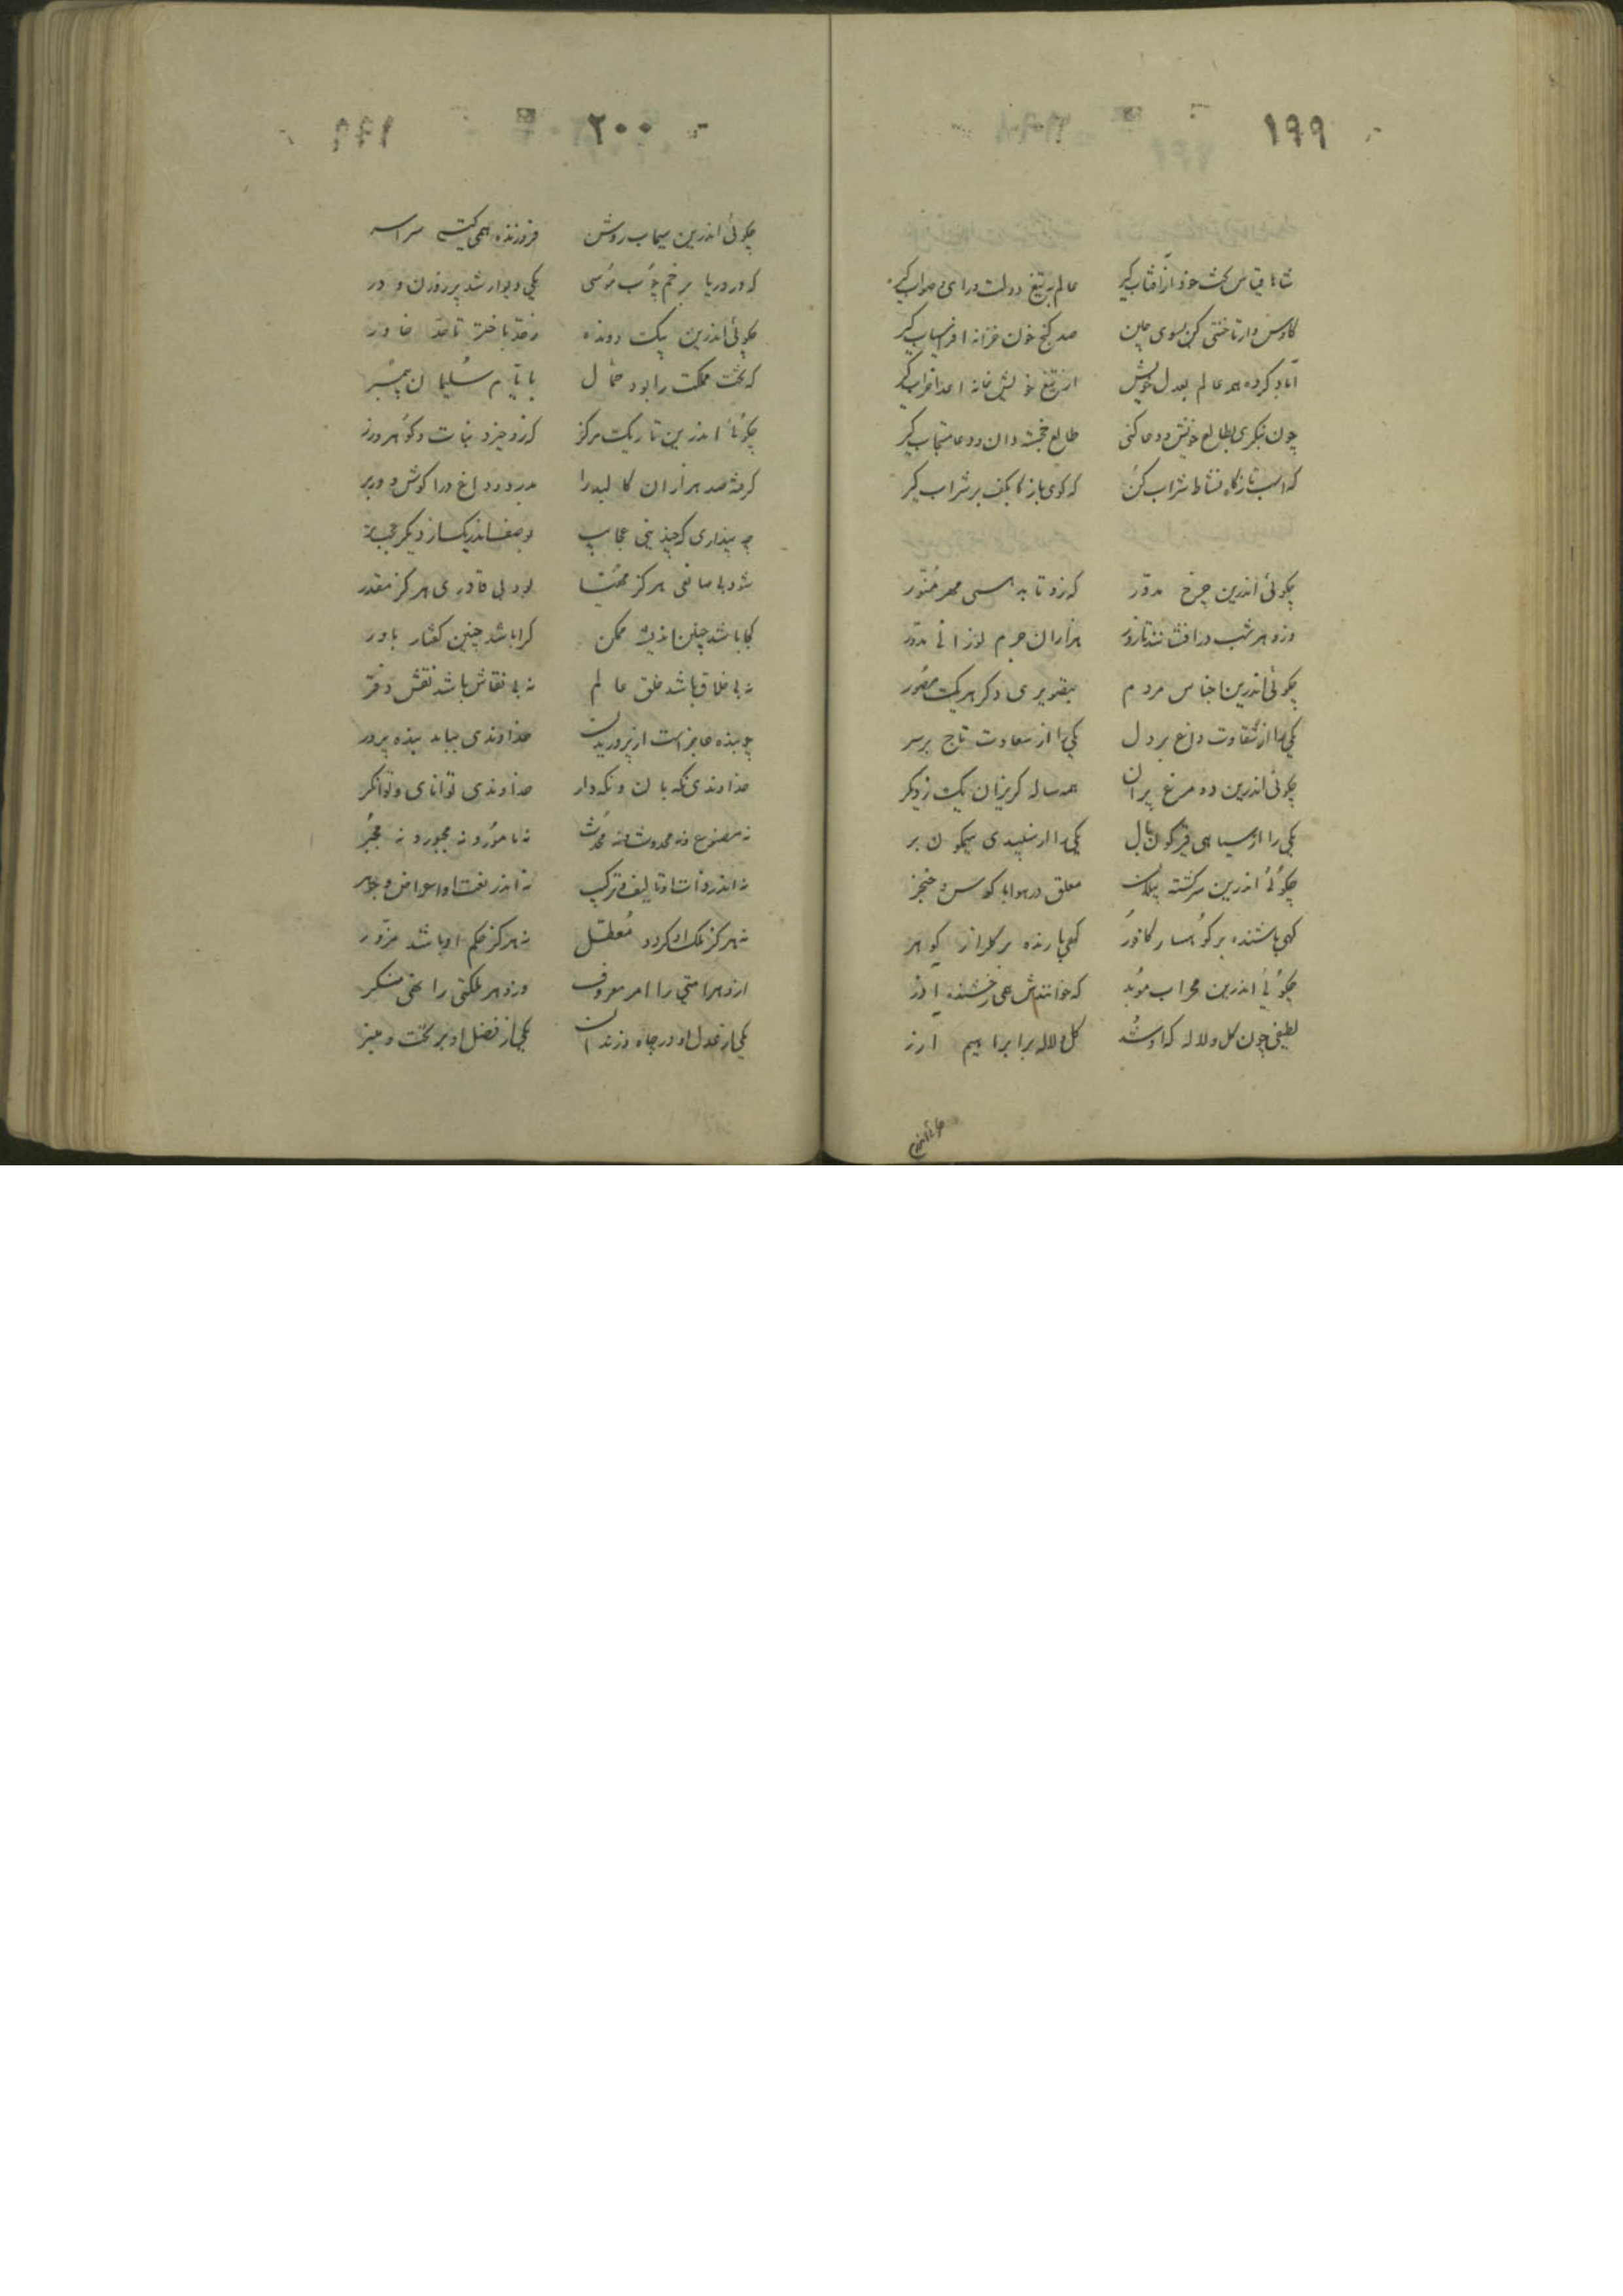 ۱۹۹
شاها قیاس بخت خود از آفتاب گیر عالم به تیغ دولت و رای صواب گیر
کاوس وار تاختنی کن بسوی چین صد گنج خون خزانه افراسیاب گیر
آباد کرده همه عالم بعدل خویش از تیغ خویش خانه اعدا خراب گیر
چون بنگری بطالع خویش و دعا کنی طالع خجسته دان و دعا مستجاب گیر
که اسب تاز گاه نشاط شراب کن که گوی باز گا بکف بر شراب گیر
چگوئی اندرین چرخ مدور کزو تابد همی مهر منور
وزو هر شب درافشانند تا روز هزاران جرم نورانی مدور
چگوئی اندرین اجناس مردم بتصویری دگر هر یک مصور
یکی را از شقاوت داغ بر دل یکی را از سعادت تاج بر سر
چگوئی اندرین دو مرغ پران همه ساله گریزان یک ز دیگر
یکی را از سیاهی قیرگون بال یکی را از سپیدی سیمگون بر
چگوئی اندرین سرگشته پیلان معلق در هوا با کوس و خنجر
گهی باشنده بر کوهسار کافور گهی بارنده بر گلزار گوهر
چگوئی اندرین محراب موبد که خوانندش همی رخشنده آذر
لطیفی چون گل و لاله که او شد گل و لاله برابراهیم آزر
چگوئی اندرین
۲۰۰
چگوئی اندرین سیماب روشن فروزنده همی گیتی سراسر
که در دریا بزخم چوب موسی یکی دیوار شد پر روزن و در
چگوئی اندرین پیک دونده ز حد باختر تا حد خاور
که تخت مملکت را بود حمال بایام سلیمان پیمبر
چگوئی اندرین تاریک مرکز کزو خیزد نبات و گوهر و زر
گرفته صد هزاران کالبد را بدرد و داغ در آگوش و در بر
چه پنداری که چندینی عجایب بوصف اندر یک از دیگر عجبتر
شود بی صانعی هرگز مهیا بود بی قادری هرگز مقدر
کجا باشد چنین اندیشه ممکن کرا باشد چنین گفتار باور
نه بی خلاق باشد خلق عالم نه بی نقاش باشد نقش دفتر
چو بنده عاجز است از پروریدن خداوندی بباید بنده پرور
خداوندی نگهبان و نگهدار خداوندی توانای و توانگر
نه مصنوع و نه محدود و نه محدث نه مامور و نه مجبور و نه مجبر
نه اندر ذات او تالیف و ترکیب نه اندر نعت او اعراض و جوهر
نه هرگز ملک او گردد معطل نه هرگز حکم او باشد مزور
ازو هر امتی را امر معروف وزو هر ملکتی را نهی منکر
یکی از عدل او در چاه و زندان یکی از فضل او بر تخت و منبر